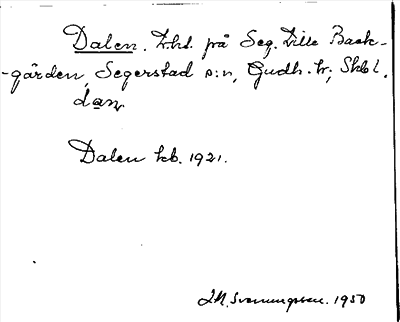 Dalen. Lht. på Seg. Lille Back-
-gården, Segerstad s:n, Gudh. hr; Skbl.
dan
Dalen kb. 1921.
J.M. Svenningsson. 1950